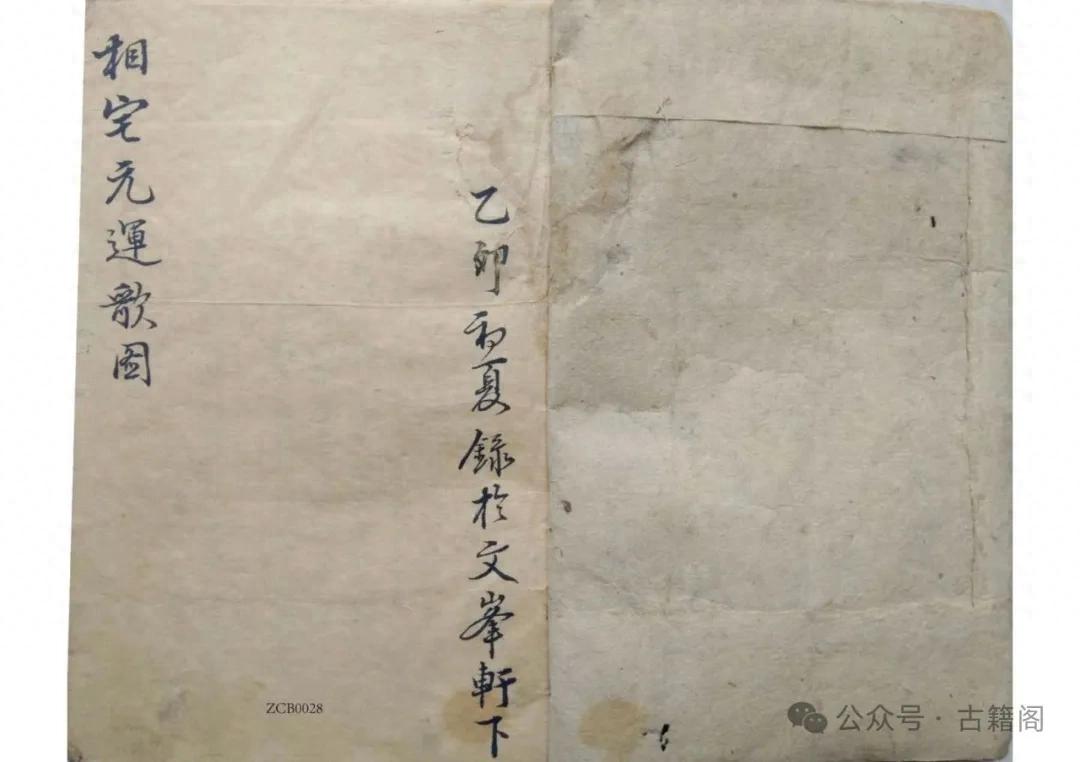 相宅元運歌图
乙卯初夏錄於文峯軒下
ZCB0028
公众号·古籍阁